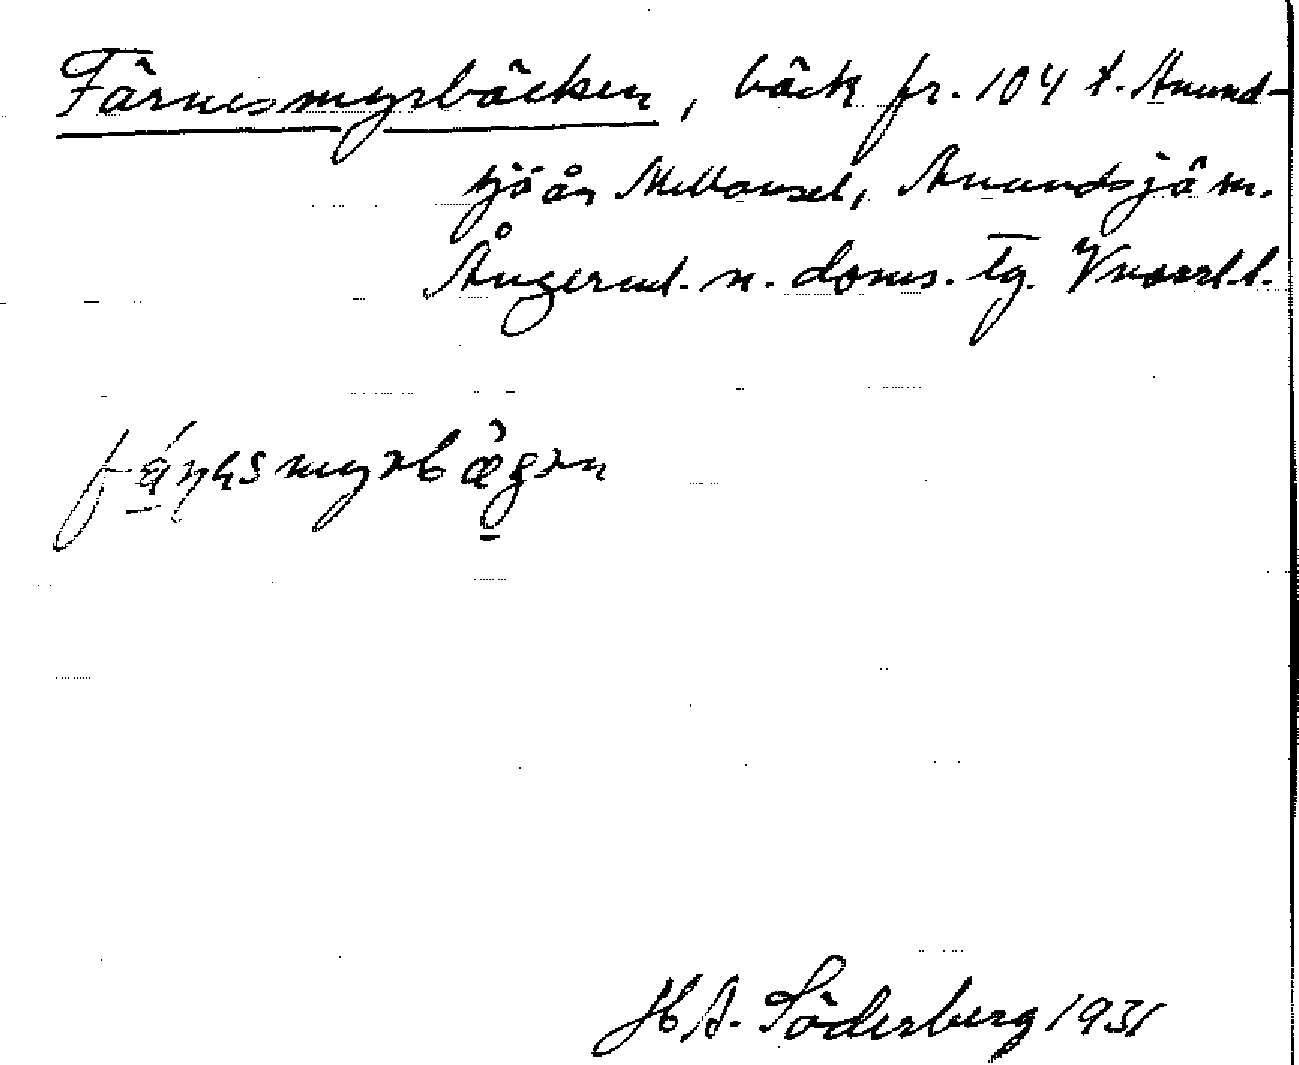 Färnesmyrbäcken, bäck fr. 104 t. Anund-
sjöån Mellansel, Anundsjö sn.
Ångerml. n. doms. tg. Vnorrl. l.
H. A. Söderberg 1931